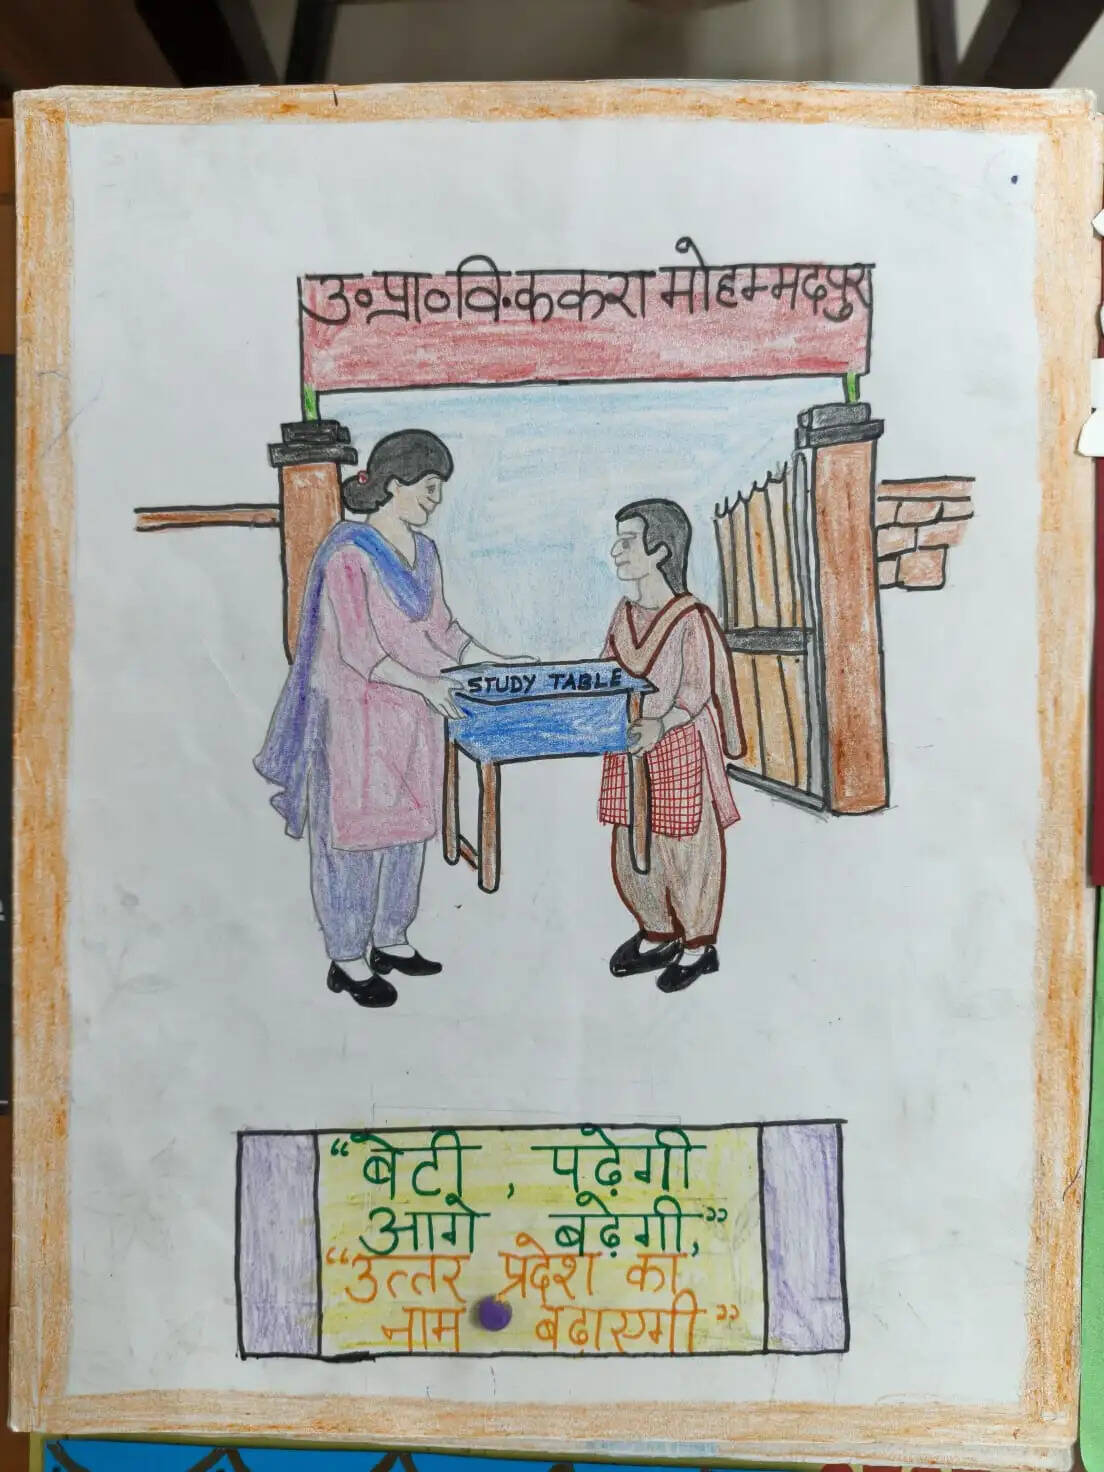 उ०प्रा०वि.ककरा मोहम्मदपुर
STUDY TABLE
“बेटी , पढ़ेगी
आगे बढ़ेगी,”
“उत्तर प्रदेश का
नाम बढाएगी”